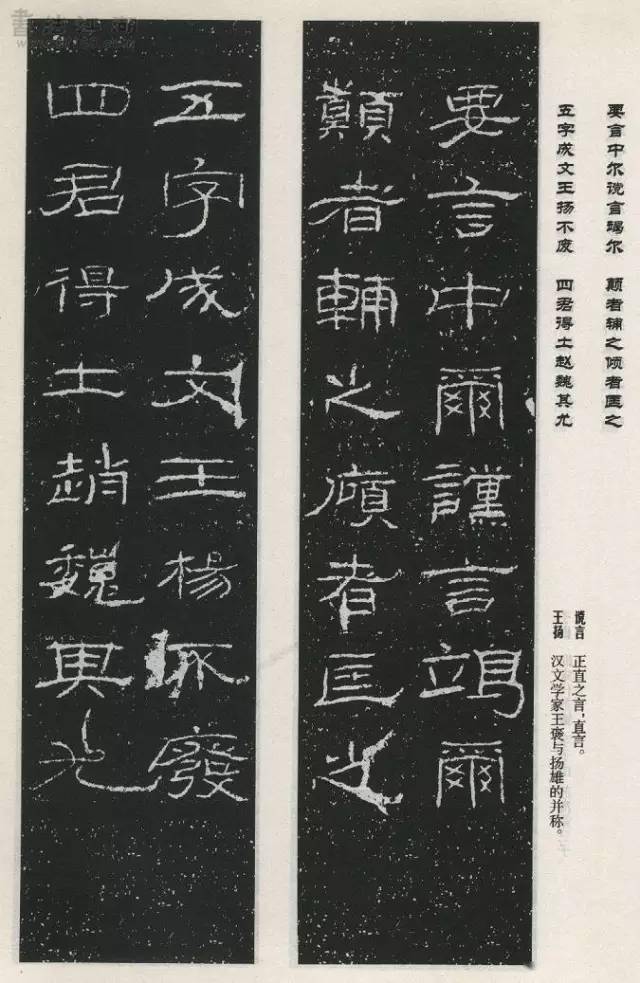 要言中尔谠言竭尔　颠者辅之倾者匡之
五字成文王扬不废　四君得士赵魏其尤
谠言　正直之言，直言。
王扬　汉文学家王褒与扬雄的并称。
要言中爾讜言竭爾
顛者輔之傾者匡之
五字成文王楊不廢
四君得士趙魏其尤
書法江湖